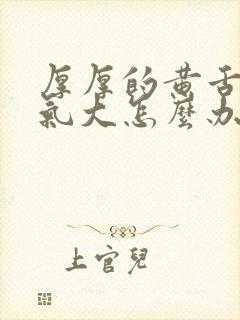 厚厚的黄舌
氣大怎麼办
上官兒